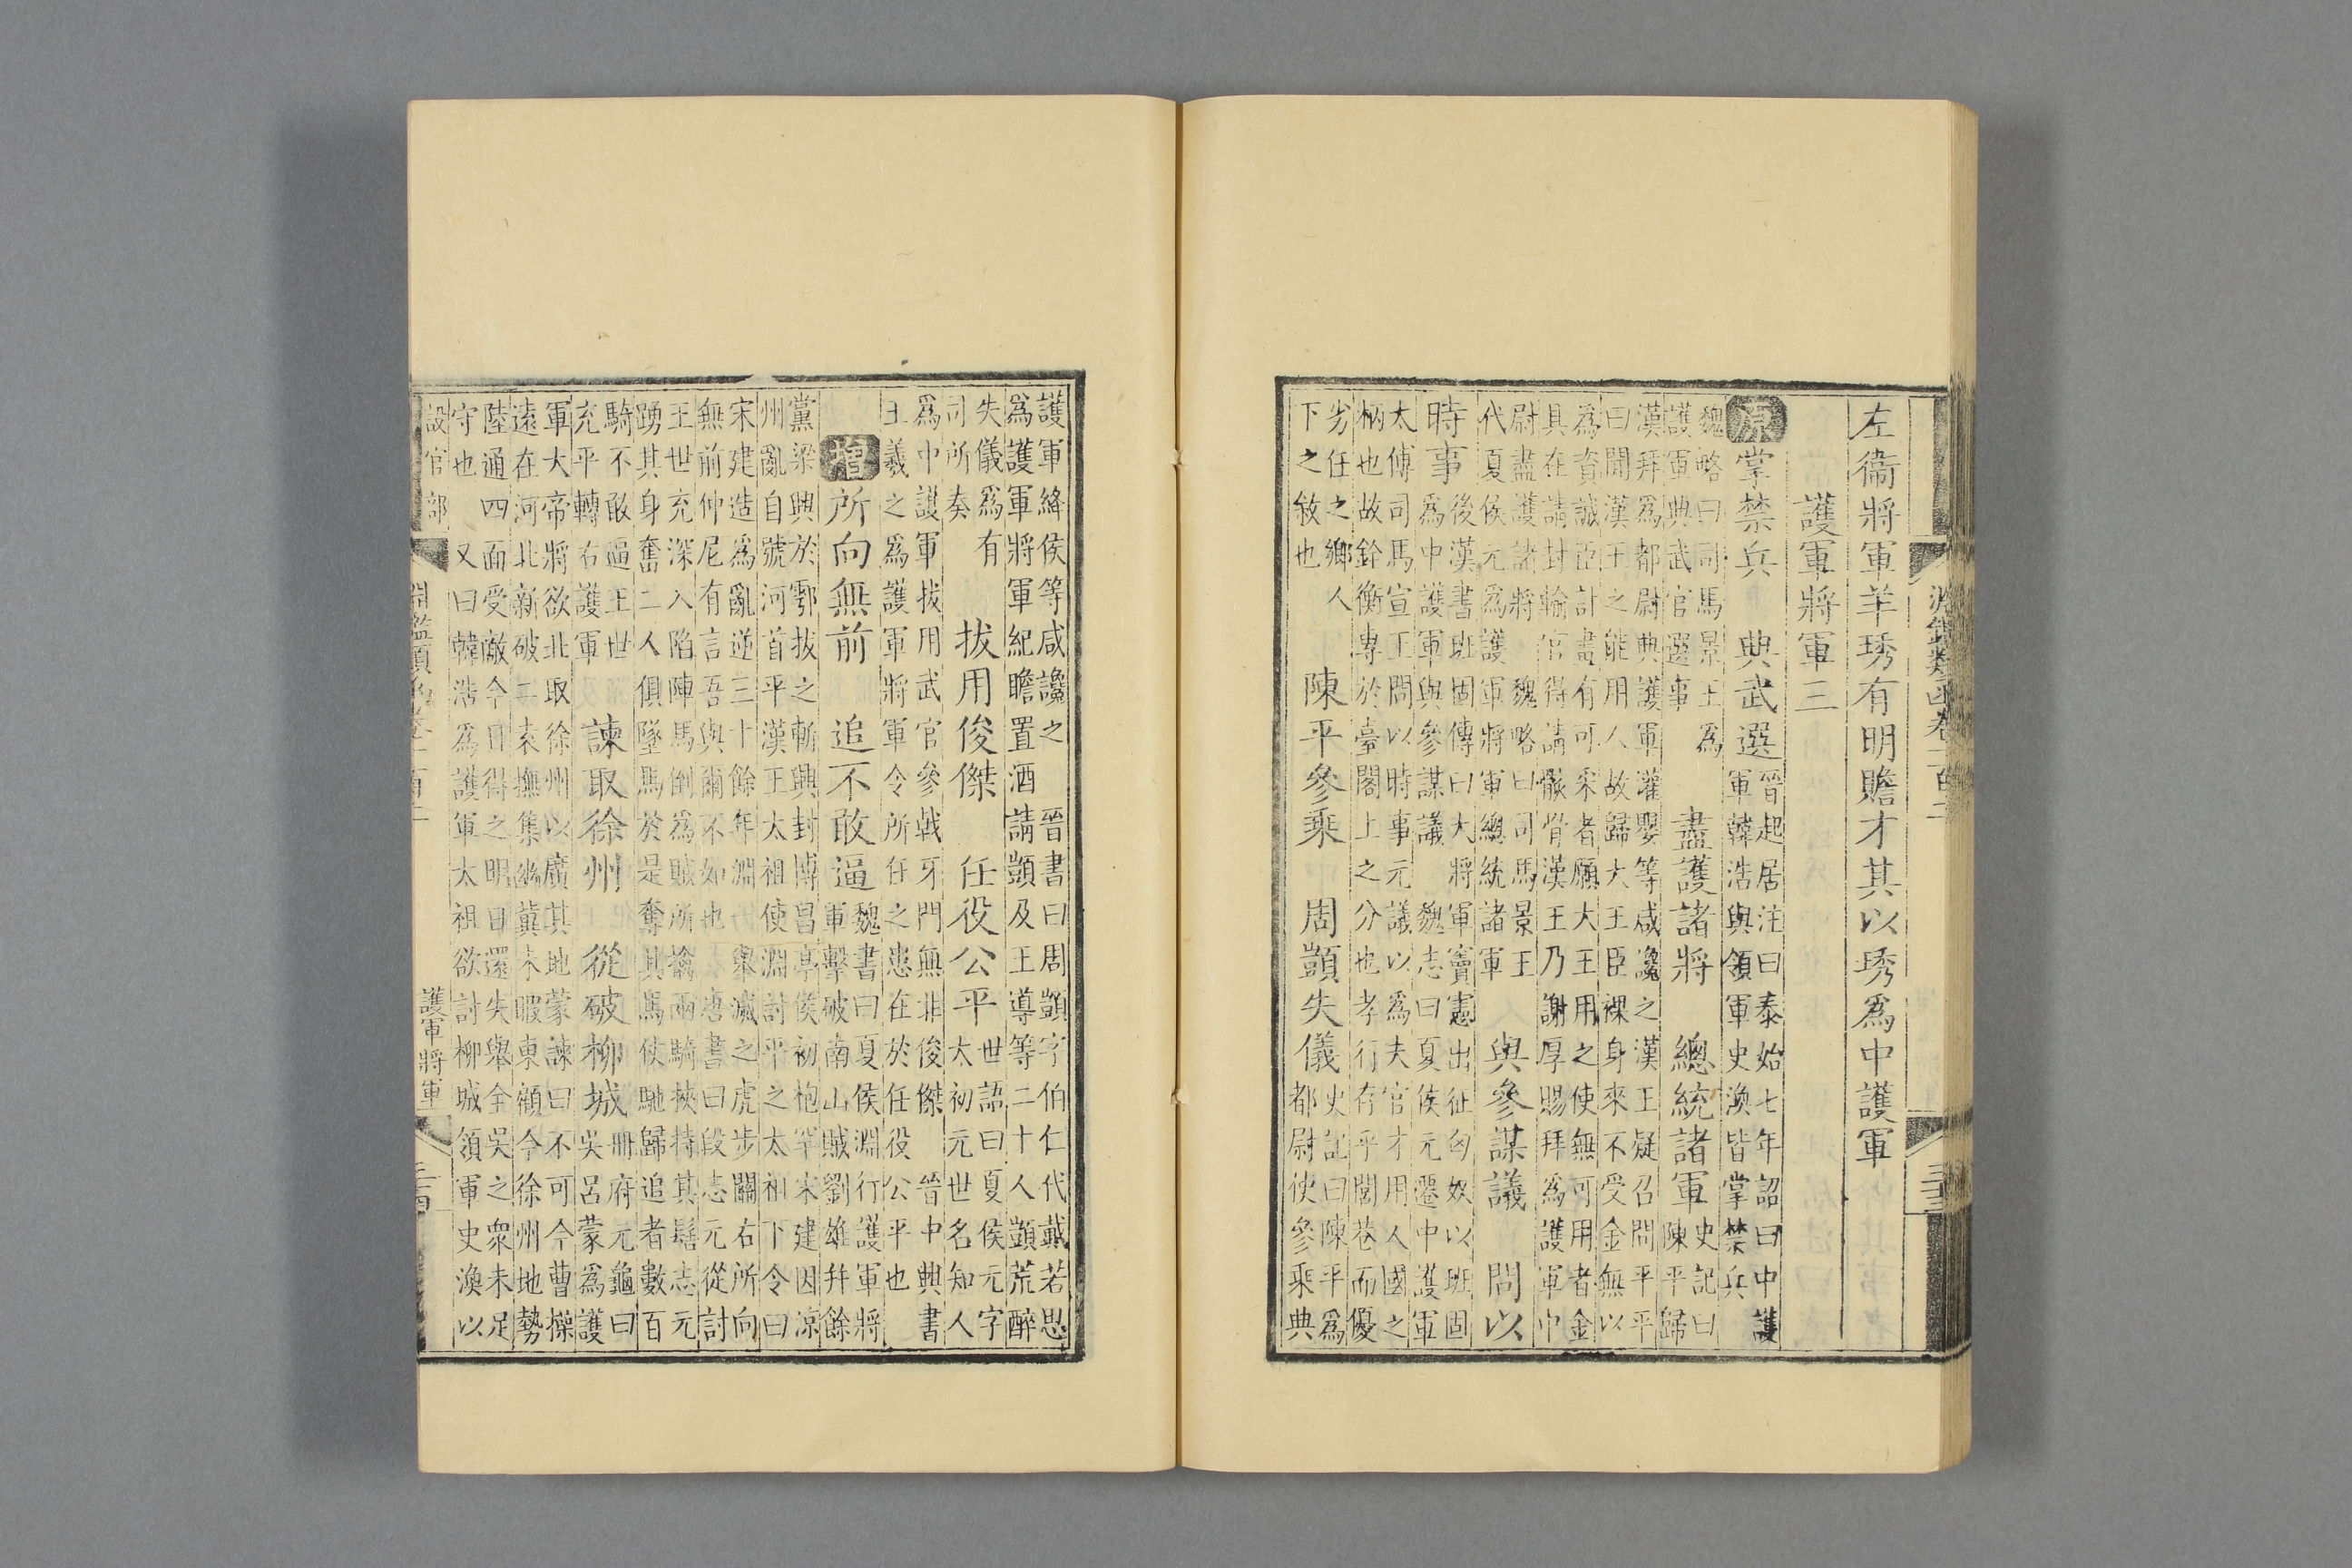 淵鑑類函卷一百十
左衞將軍羊琇有明贍才其以琇爲中護軍
護軍將軍三
原掌禁兵　典武選
晉起居注曰泰始七年詔曰中護
軍韓浩與領軍史渙皆掌禁兵
魏略曰司馬景王爲
護軍典武官選事
盡護諸將　總統諸軍
史記曰
陳平歸
漢拜爲都尉典護軍灌嬰等咸讒之漢王疑召問平平
曰聞漢王之能用人故歸大王臣裸身來不受金無以
爲資誠臣計畫有可采者願大王用之使無可用者金
具在請封輸官得請骸骨漢王乃謝厚賜拜爲護軍中
尉盡護諸將　魏略曰司馬景王
代夏侯元爲護軍將軍總統諸軍
與參謀議　問以
時事
後漢書班固傳曰大將軍竇憲出征匈奴以班固
爲中護軍與參謀議　魏志曰夏侯元遷中護軍
太傅司馬宣王問以時事元議以爲夫官才用人國之
柄也故銓衡專於臺閣上之分也孝行存乎閭巷而優
劣任之鄉人
下之敘也
陳平參乘　周顗失儀
史記曰陳平爲
都尉使參乘典
護軍絳侯等咸讒之　晉書曰周顗字伯仁代戴若思
爲護軍將軍紀瞻置酒請顗及王導等二十人顗荒醉
失儀爲有
司所奏
拔用俊傑　任役公平
世語曰夏侯元字
太初元世名知人
爲中護軍拔用武官參戟牙門無非俊傑　晉中興書
王羲之爲護軍將軍令所任之患在於任役公平也
增所向無前　追不敢逼
魏書曰夏侯淵行護軍將
軍擊破南山賊劉雄幷餘
黨梁興於鄠拔之斬興封博昌亭侯初枹罕宋建因涼
州亂自號河首平漢王太祖使淵討平之太祖下令曰
宋建造爲亂逆三十餘年淵一舉滅之虎步關右所向
無前仲尼有言吾與爾不如也　唐書曰段志元從討
王世充深入陷陣馬倒爲賊所擒兩騎挾持其髻志元
踴其身奮二人俱墜馬於是奪其馬使馳歸追者數百
騎不敢逼王世
充平轉右護軍
諫取徐州　從破柳城
冊府元龜曰
吳呂蒙爲護
軍大帝將欲北取徐州以廣其地蒙諫曰不可今曹操
遠在河北新破二袁撫集幽冀未暇東顧今徐州地勢
陸通四面受敵今日得之明日還失舉全吳之衆未足
守也　又曰韓浩爲護軍太祖欲討柳城領軍史渙以
設官部
護軍將軍